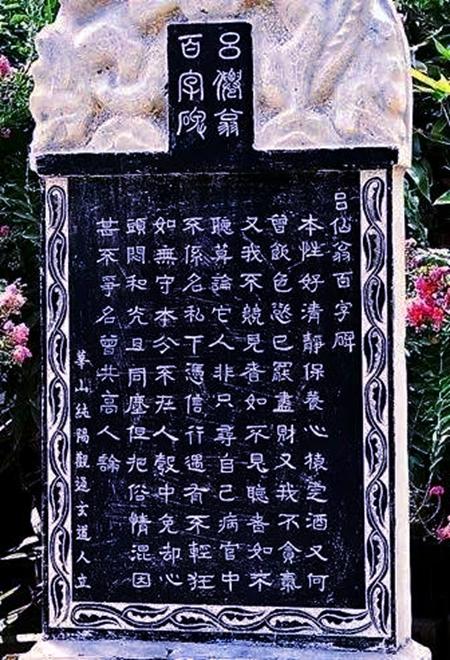 呂僊翁
百字碑
呂仙翁百字碑
本性好清靜保養心猿定酒又何
曾飲色慾已罷盡財又我不貪氣
又我不競見者如不見聽者如不
聽莫論它人非只尋自己病官中
不係名私下憑信行遇有不輕狂
如無守本分不在人彀中免却心
頭悶和光且同塵但把俗情混因
甚不爭名曾共高人論
華山純陽觀通玄道人立